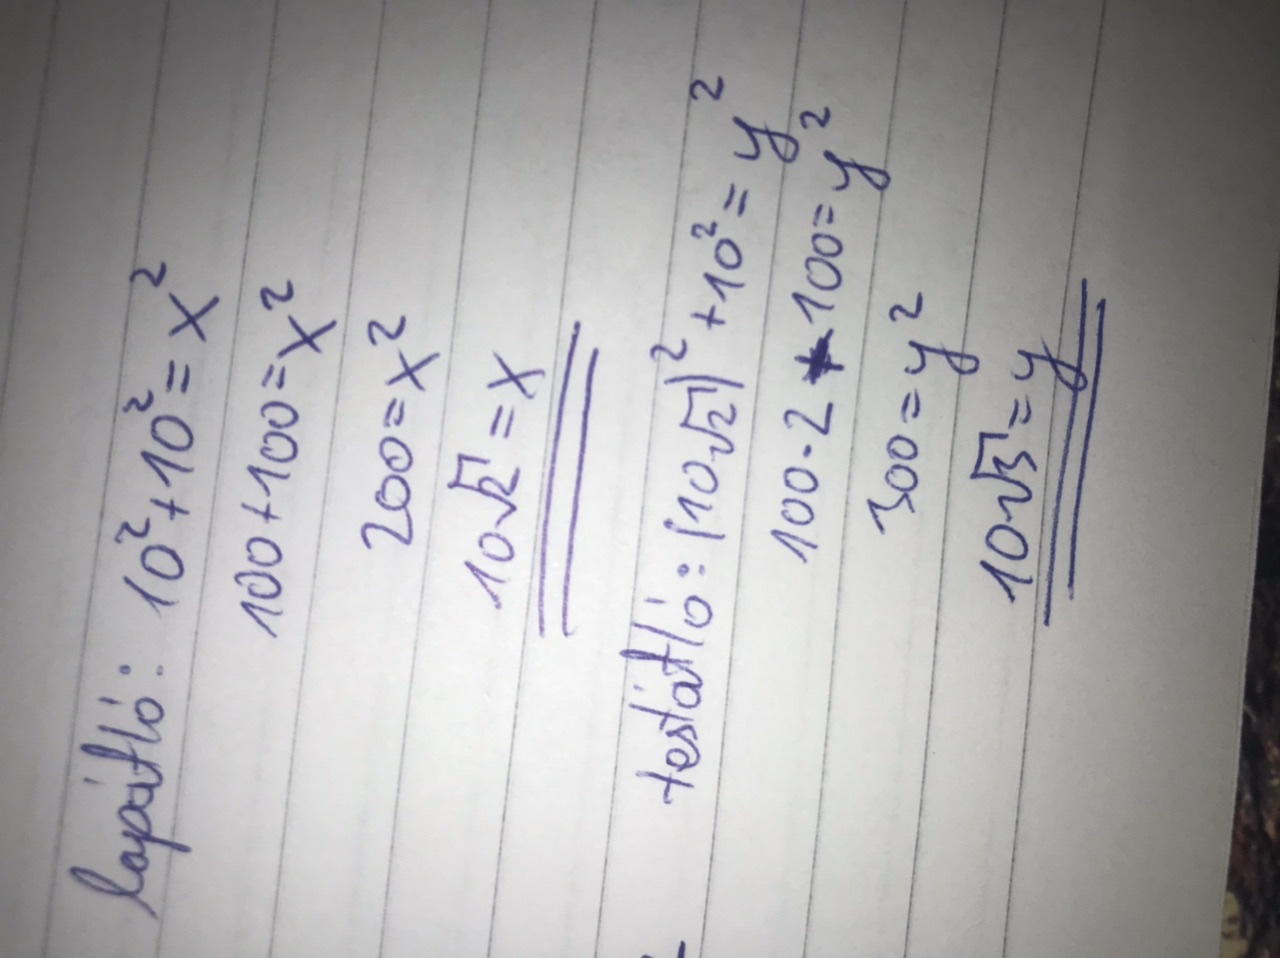 lapátló: 10² + 10² = x²
100 + 100 = x²
200 = x²
10√2 = x
testátló: (10√2)² + 10² = y²
100 · 2 + 100 = y²
300 = y²
10√3 = y